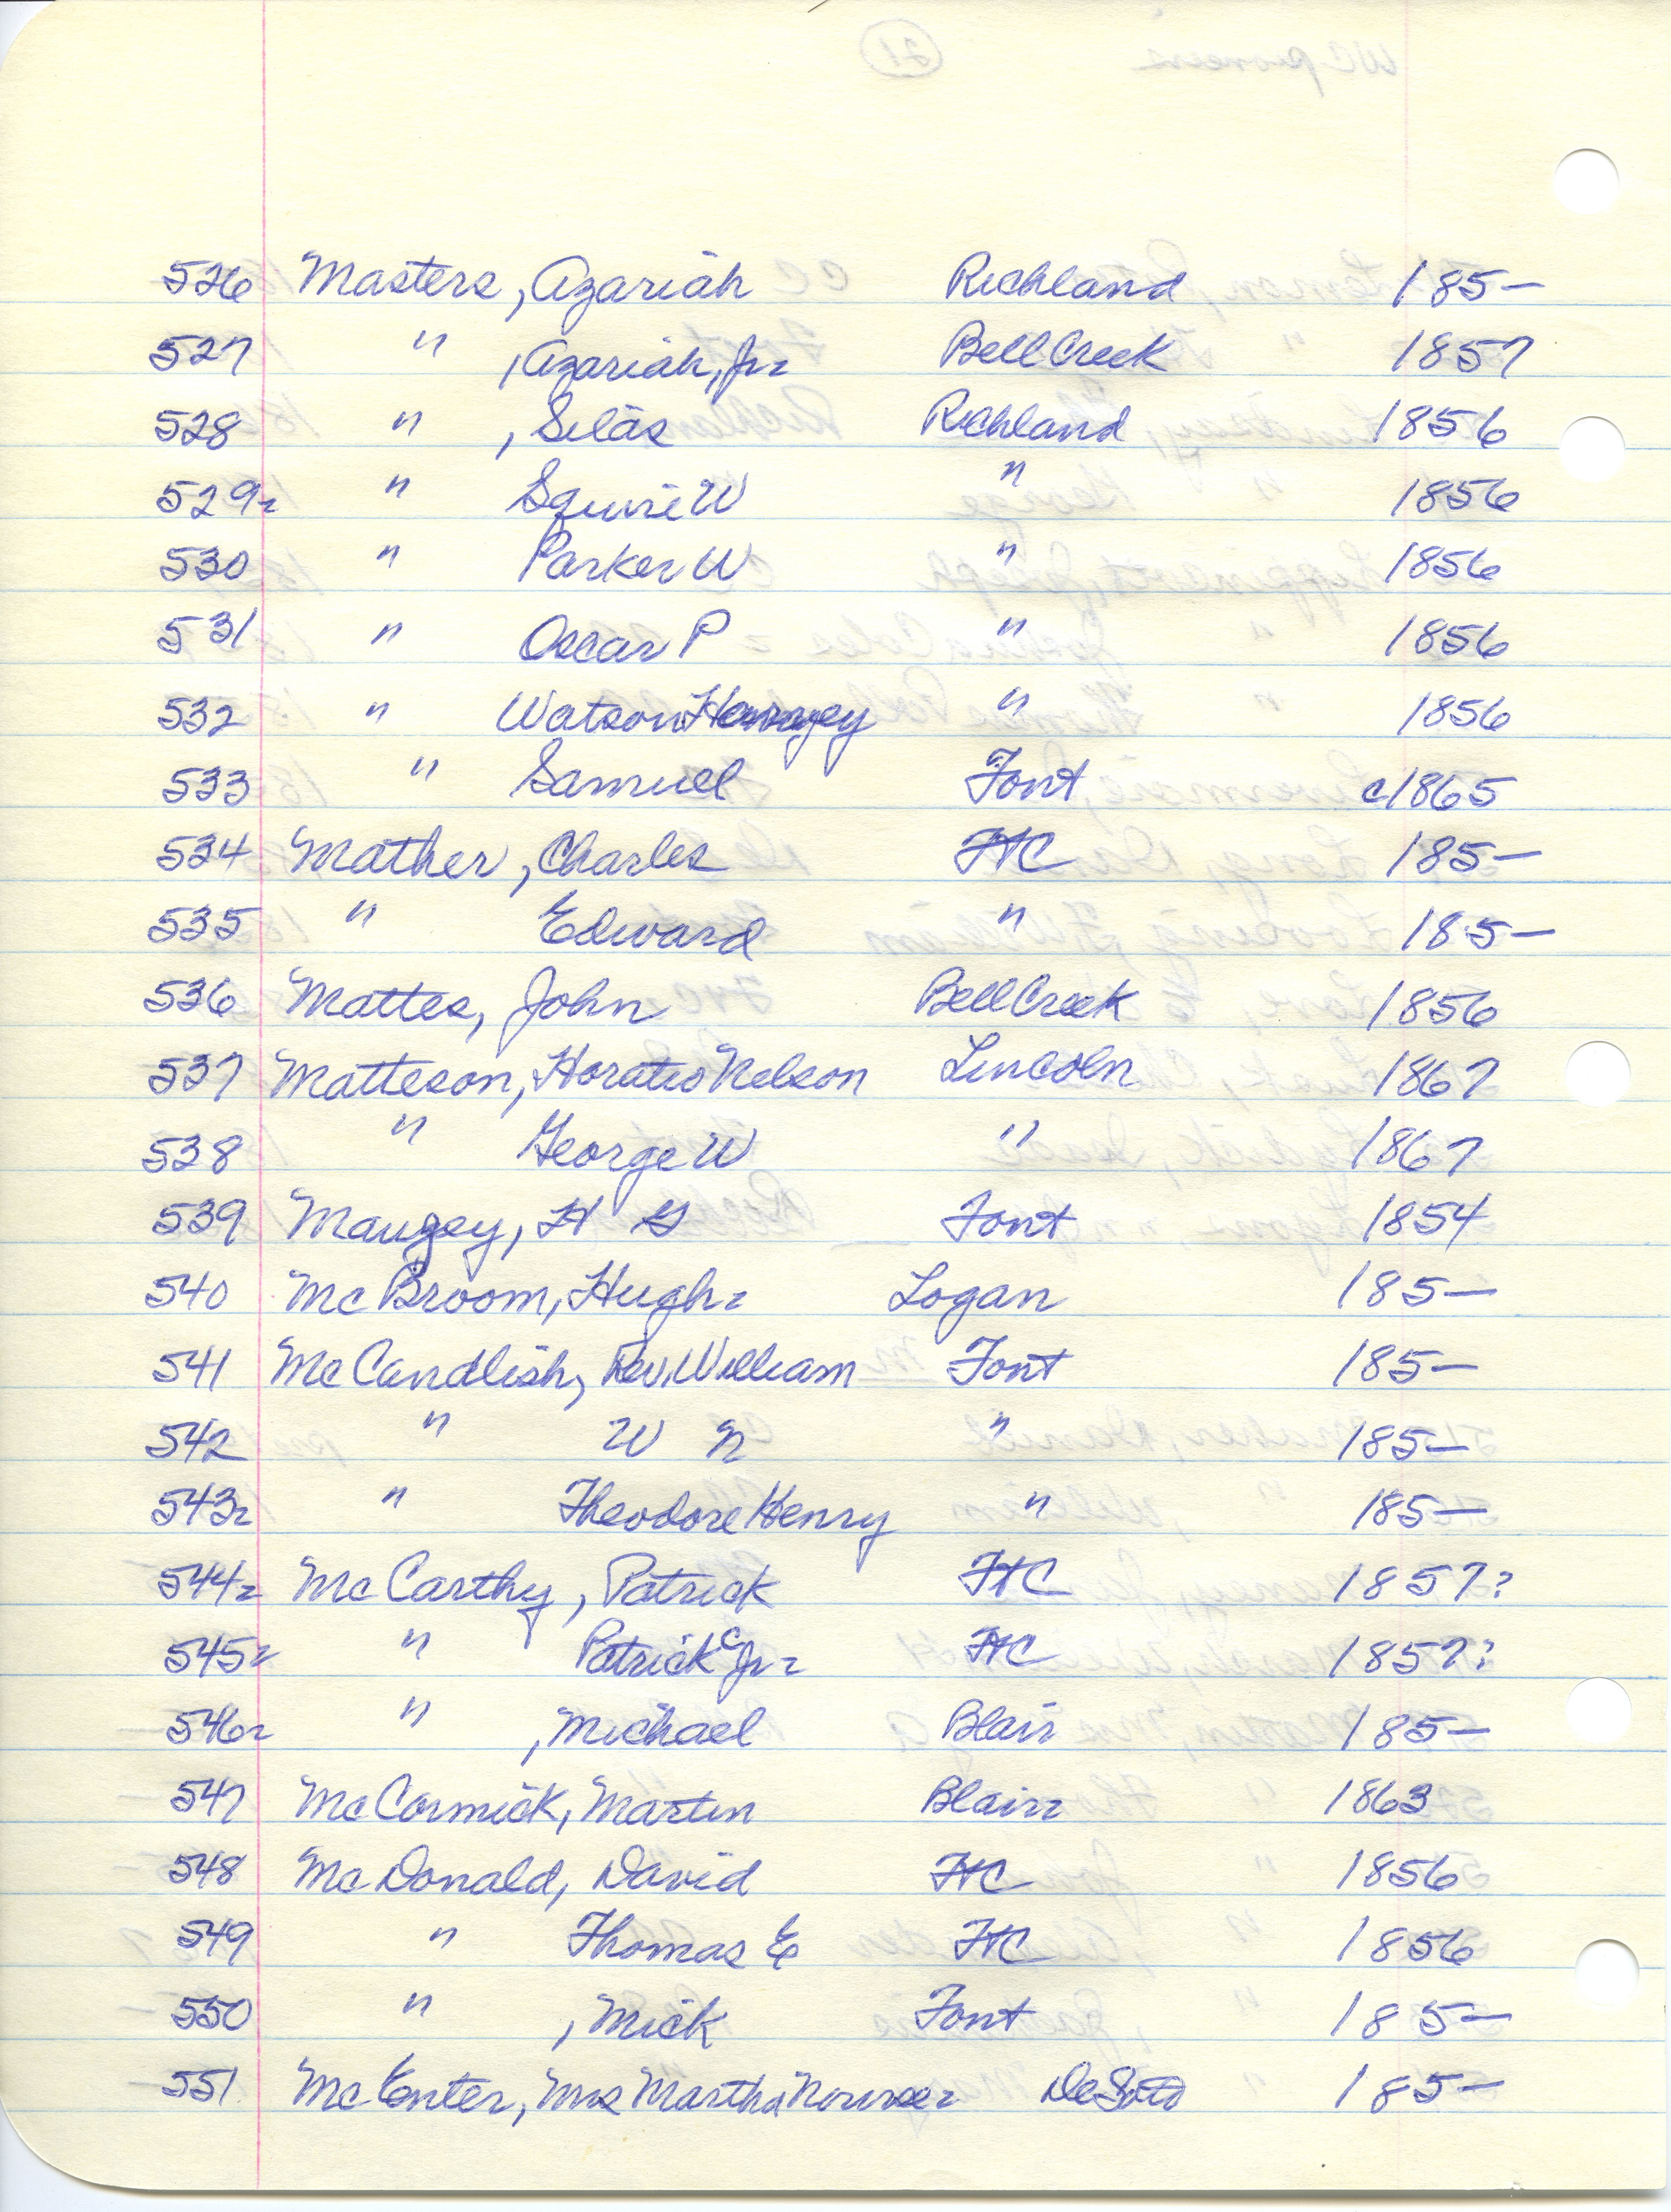 526 Masters, Azariah Richland 185-
527 " , Azariah, Jr. Bell Creek 1857
528 " , Silas Richland 1856
529 " Squire W " 1856
530 " Parker W " 1856
531 " Oscar P " 1856
532 " Watson " 1856
533 " Samuel Font c1865
534 Mather, Charles FtC 185-
535 " Edward " 185-
536 Mattes, John Bell Creek 1856
537 Matteson, Horatio Nelson Lincoln 1867
538 " George W " 1867
539 Mauzey, H G Font 1854
540 McBroom, Hugh Logan 185-
541 McCandlish, Rev. William Font 185-
542 " W N " 185-
543 " Theodore Henry " 185-
544 McCarthy, Patrick FtC 1857?
545 " Patrick C Jr. FtC 1857?
546 " , Michael Blair 185-
547 McCormick, Martin Blair 1863
548 McDonald, David FtC 1856
549 " Thomas E FtC 1856
550 " , Mick Font 185-
551 McEnter, Mrs Martha DeSoto 185-